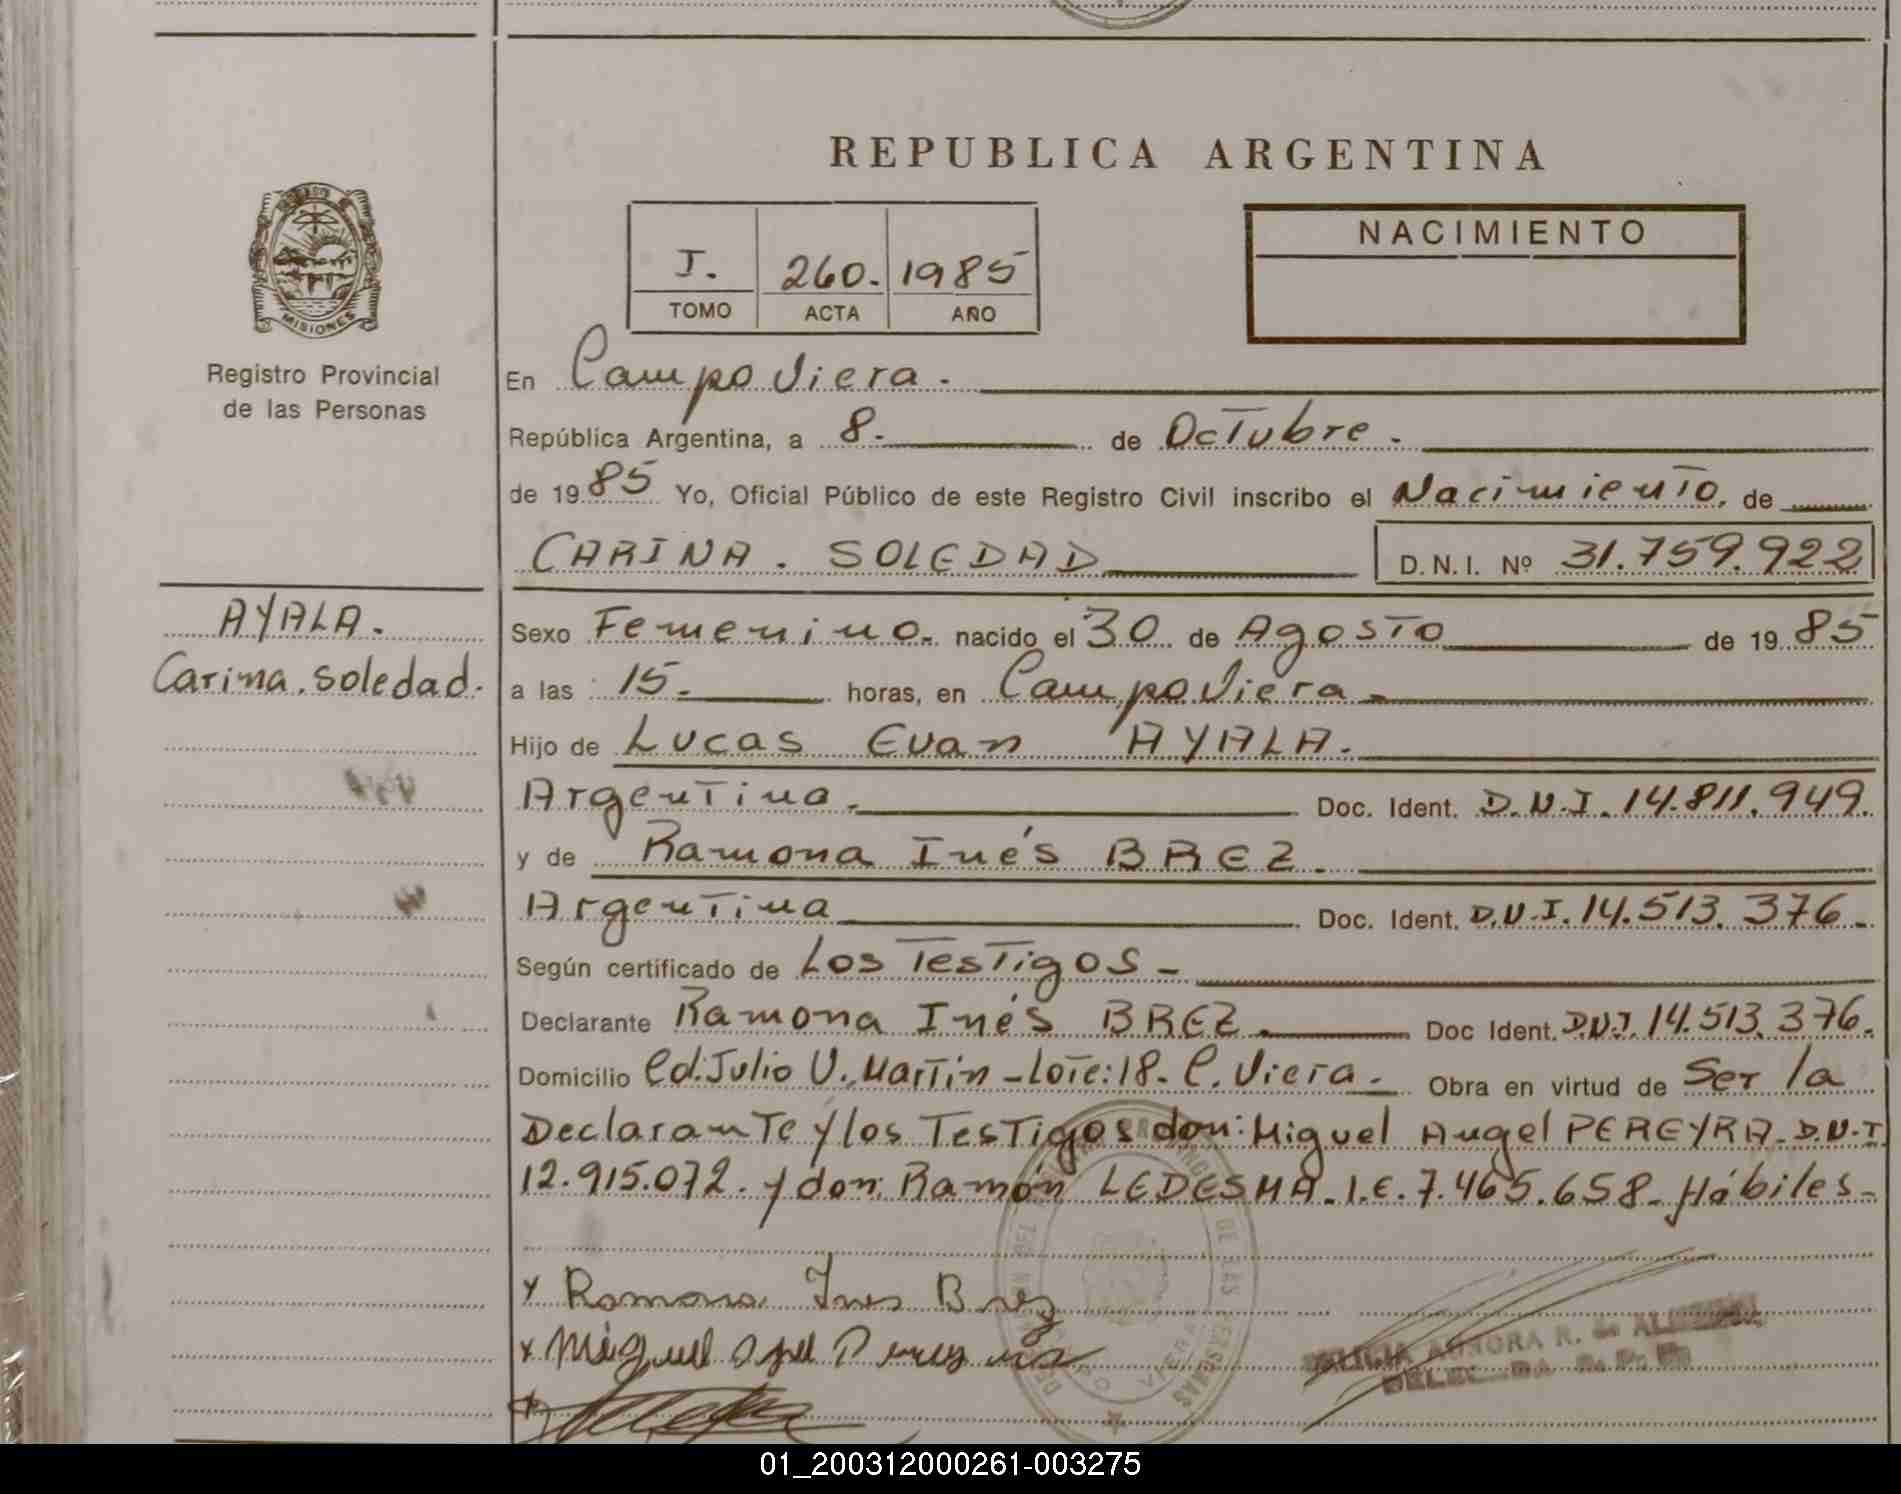 REPUBLICA ARGENTINA
MISIONES
Registro Provincial
de las Personas
I. 260. 1985
TOMO ACTA AÑO
NACIMIENTO
En Campo Viera.
República Argentina, a 8. de Octubre.
de 1985 Yo, Oficial Público de este Registro Civil inscribo el Nacimiento, de
CARINA. SOLEDAD D.N.I. Nº 31.759.922
AYALA.
Carina. Soledad.
Sexo Femenino. nacido el 30 de Agosto de 1985
a las 15. horas, en Campo Viera.
Hijo de Lucas Evan AYALA.
Argentina. Doc. Ident. D.N.I. 14.811.949.
y de Ramona Inés BREZ.
Argentina Doc. Ident. D.N.I. 14.513.376.
Según certificado de Los Testigos -
Declarante Ramona Inés BREZ. Doc Ident. D.N.I. 14.513.376.
Domicilio Cd. Julio U. Martin - Lote: 18. C. Viera. Obra en virtud de Ser la
Declarante y los Testigos don: Miguel Angel PEREYRA. D.N.I
12.915.072. y don: Ramón LEDESMA. I.E. 7.465.658 - Hábiles -
x Ramona Ines Brez
x Miguel Pereyra
DE LAS PERSONAS
VIERA
R. de
01_200312000261-003275